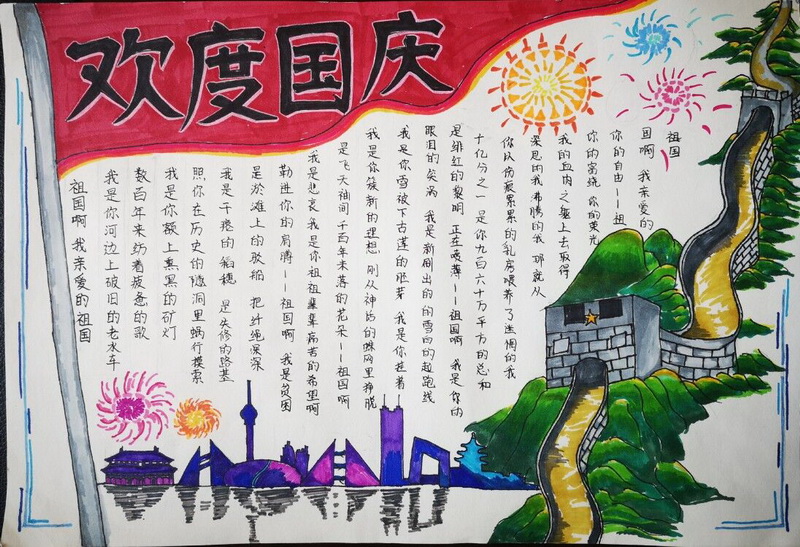 欢度国庆
祖国啊 我亲爱的祖国
我是你河边上破旧的老水车
数百年来纺着疲惫的歌
我是你额上熏黑的矿灯
照你在历史的隧洞里蜗行摸索
我是干瘪的稻穗 是失修的路基
是淤滩上的驳船 把纤绳深深
勒进你的肩膊——祖国啊 我是贫困
我是悲哀 我是你祖祖辈辈痛苦的希望啊
是飞天袖间 千百年未落的花朵——祖国啊
我是你簇新的理想 刚从神话的蛛网里挣脱
我是你雪被下古莲的胚芽 我是你挂着
眼泪的笑涡 我是新刷出的的雪白的起跑线
是绯红的黎明 正在喷薄——祖国啊 我是你的
十亿分之一 是你九百六十万平方的总和
你以伤痕累累的乳房喂养了迷惘的我
深思的我 沸腾的我 那就从
我的血肉之躯上去取得
你的富饶 你的荣光
你的自由——祖
国啊 我亲爱的
祖国